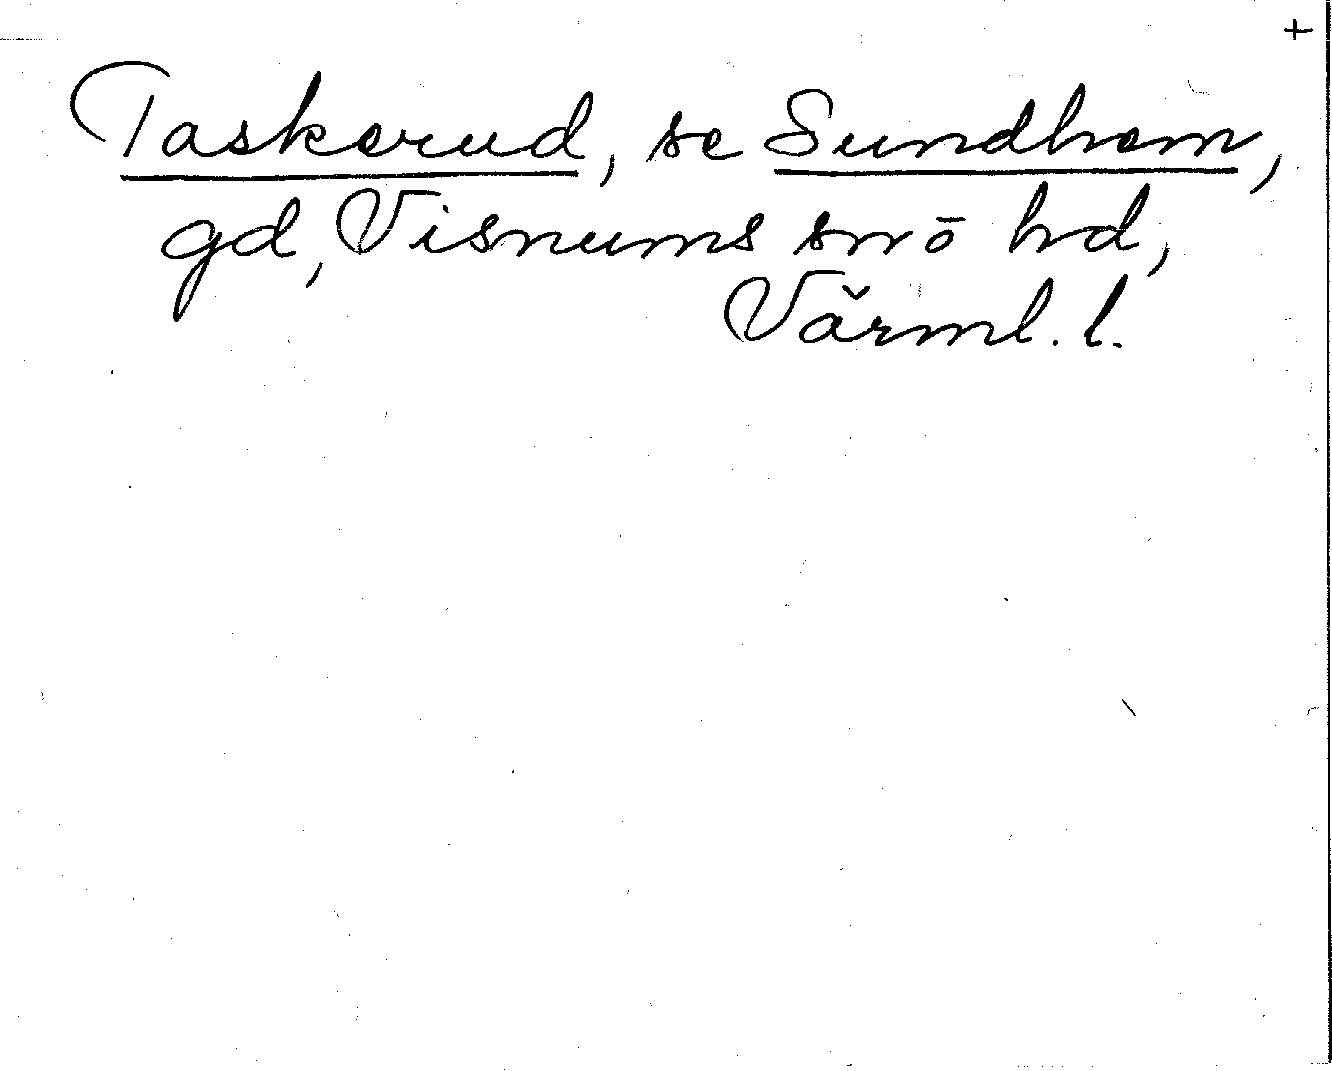 +
Taskerud, se Sundhem,
gd, Visnums snö hd,
Värml. l.